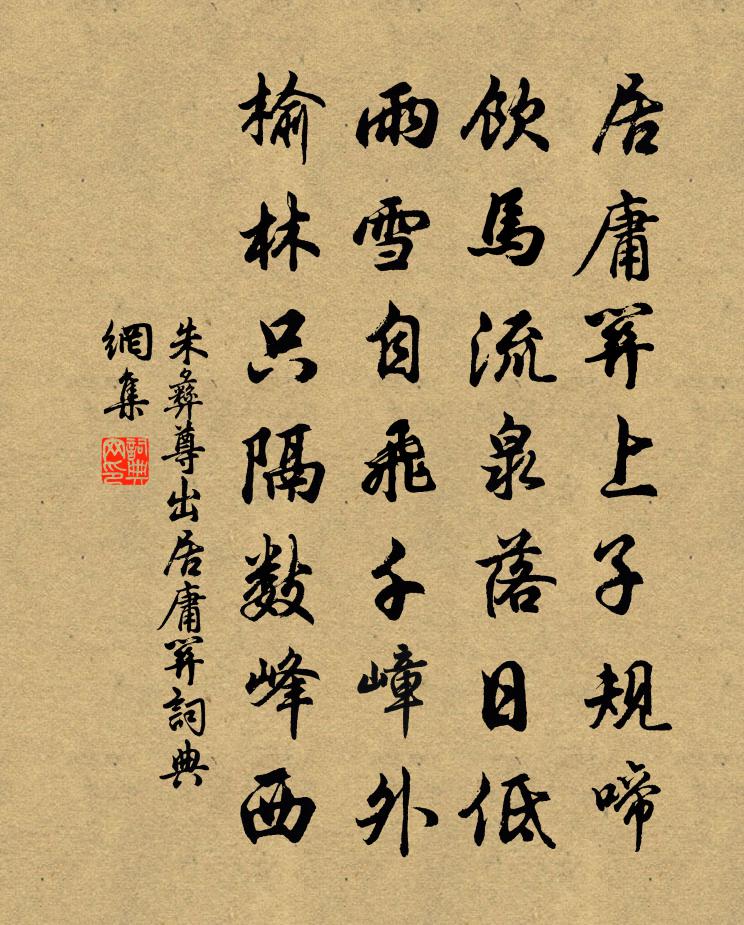 居庸關上子規啼
飲馬流泉落日低
雨雪自飛千嶂外
榆林只隔數峰西
朱彝尊出居庸關詞典
網集
詞典
网印